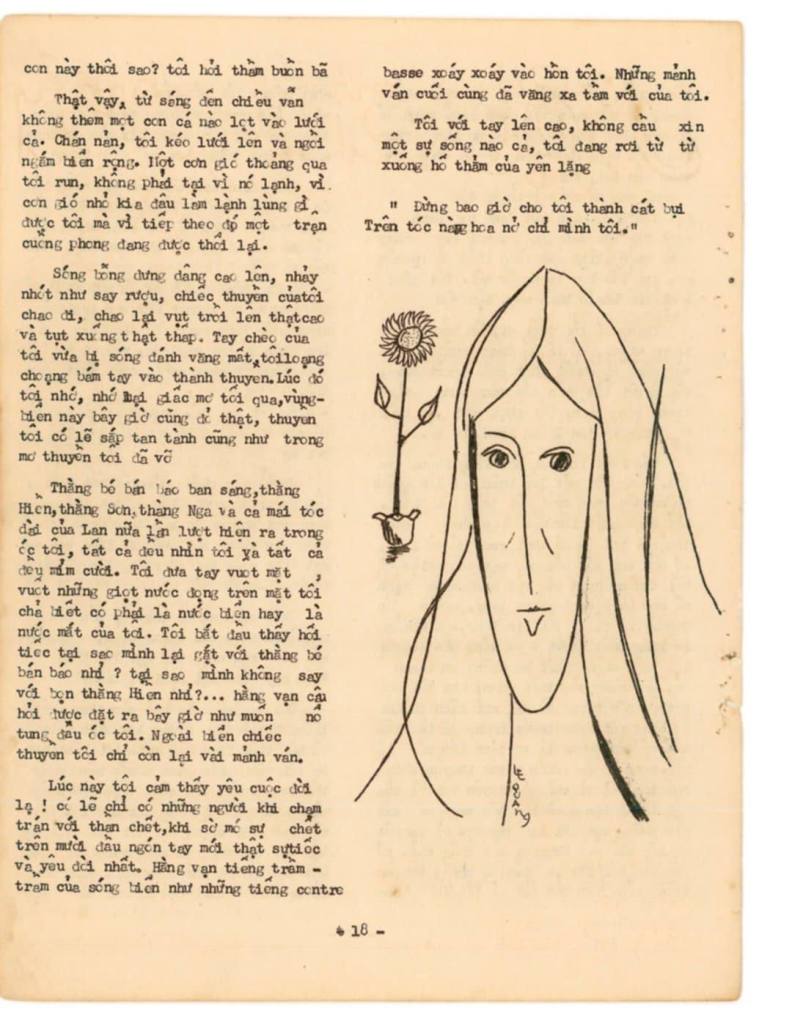 con này thôi sao? tôi hỏi thầm buồn bã
Thật vậy, từ sáng đến chiều vẫn
không thêm một con cá nào lọt vào lưới
cả. Chán nản, tôi kéo lưới lên và ngồi
ngắm biển rộng. Một cơn gió thoảng qua
tôi run, không phải tại vì nó lạnh, vì
cơn gió nhỏ kia đâu làm lạnh lùng gì
được tôi mà vì tiếp theo đó một trận
cuồng phong đang được thổi lại.
Sóng bỗng dưng dâng cao lên, nhảy
nhót như say rượu, chiếc thuyền củatôi
chao đi, chao lại vụt trồi lên thậtcao
và tụt xuống thật thấp. Tay chèo của
tôi vừa bị sóng đánh văng mất,tôiloạng
choạng bám tay vào thành thuyền.Lúc đó
tôi nhớ, nhớ lại giấc mơ tôi qua,vùng-
biển này bây giờ cũng đó thật, thuyền
tôi có lẽ sắp tan tành cũng như trong
mơ thuyền tôi đã vỡ
Thằng bé bán báo ban sáng,thằng
Hiền,thằng Sơn,thằng Nga và cả mái tóc
dài của Lan nữa lần lượt hiện ra trong
óc tôi, tất cả đều nhìn tôi và tất cả
đều mỉm cười. Tôi đưa tay vuốt mặt ,
vuốt những giọt nước đọng trên mặt tôi
chả biết có phải là nước biển hay là
nước mắt của tôi. Tôi bắt đầu thấy hối
tiếc tại sao mình lại gắt với thằng bé
bán báo nhỉ ? tại sao mình không say
với bọn thằng Hiền nhỉ?... hằng vạn câu
hỏi được đặt ra bây giờ như muốn nổ
tung đầu óc tôi. Ngoài biển chiếc
thuyền tôi chỉ còn lại vài mảnh ván.
Lúc này tôi cảm thấy yêu cuộc đời
lạ ! có lẽ chỉ có những người khi chạm
trán với thần chết,khi sờ mó sự chết
trên mười đầu ngón tay mới thật sựtiếc
và yêu đời nhất. Hằng vạn tiếng trầm -
trầm của sóng biển như những tiếng contre
basse xoáy xoáy vào hồn tôi. Những mảnh
ván cuối cùng đã văng xa tầm với của tôi.
Tôi với tay lên cao, không cầu xin
một sự sống nào cả, tôi đang rơi từ từ
xuống hố thẳm của yên lặng
" Đừng bao giờ cho tôi thành cát bụi
Trên tóc nàng hoa nở chỉ mình tôi."
LE QUANG
- 18 -